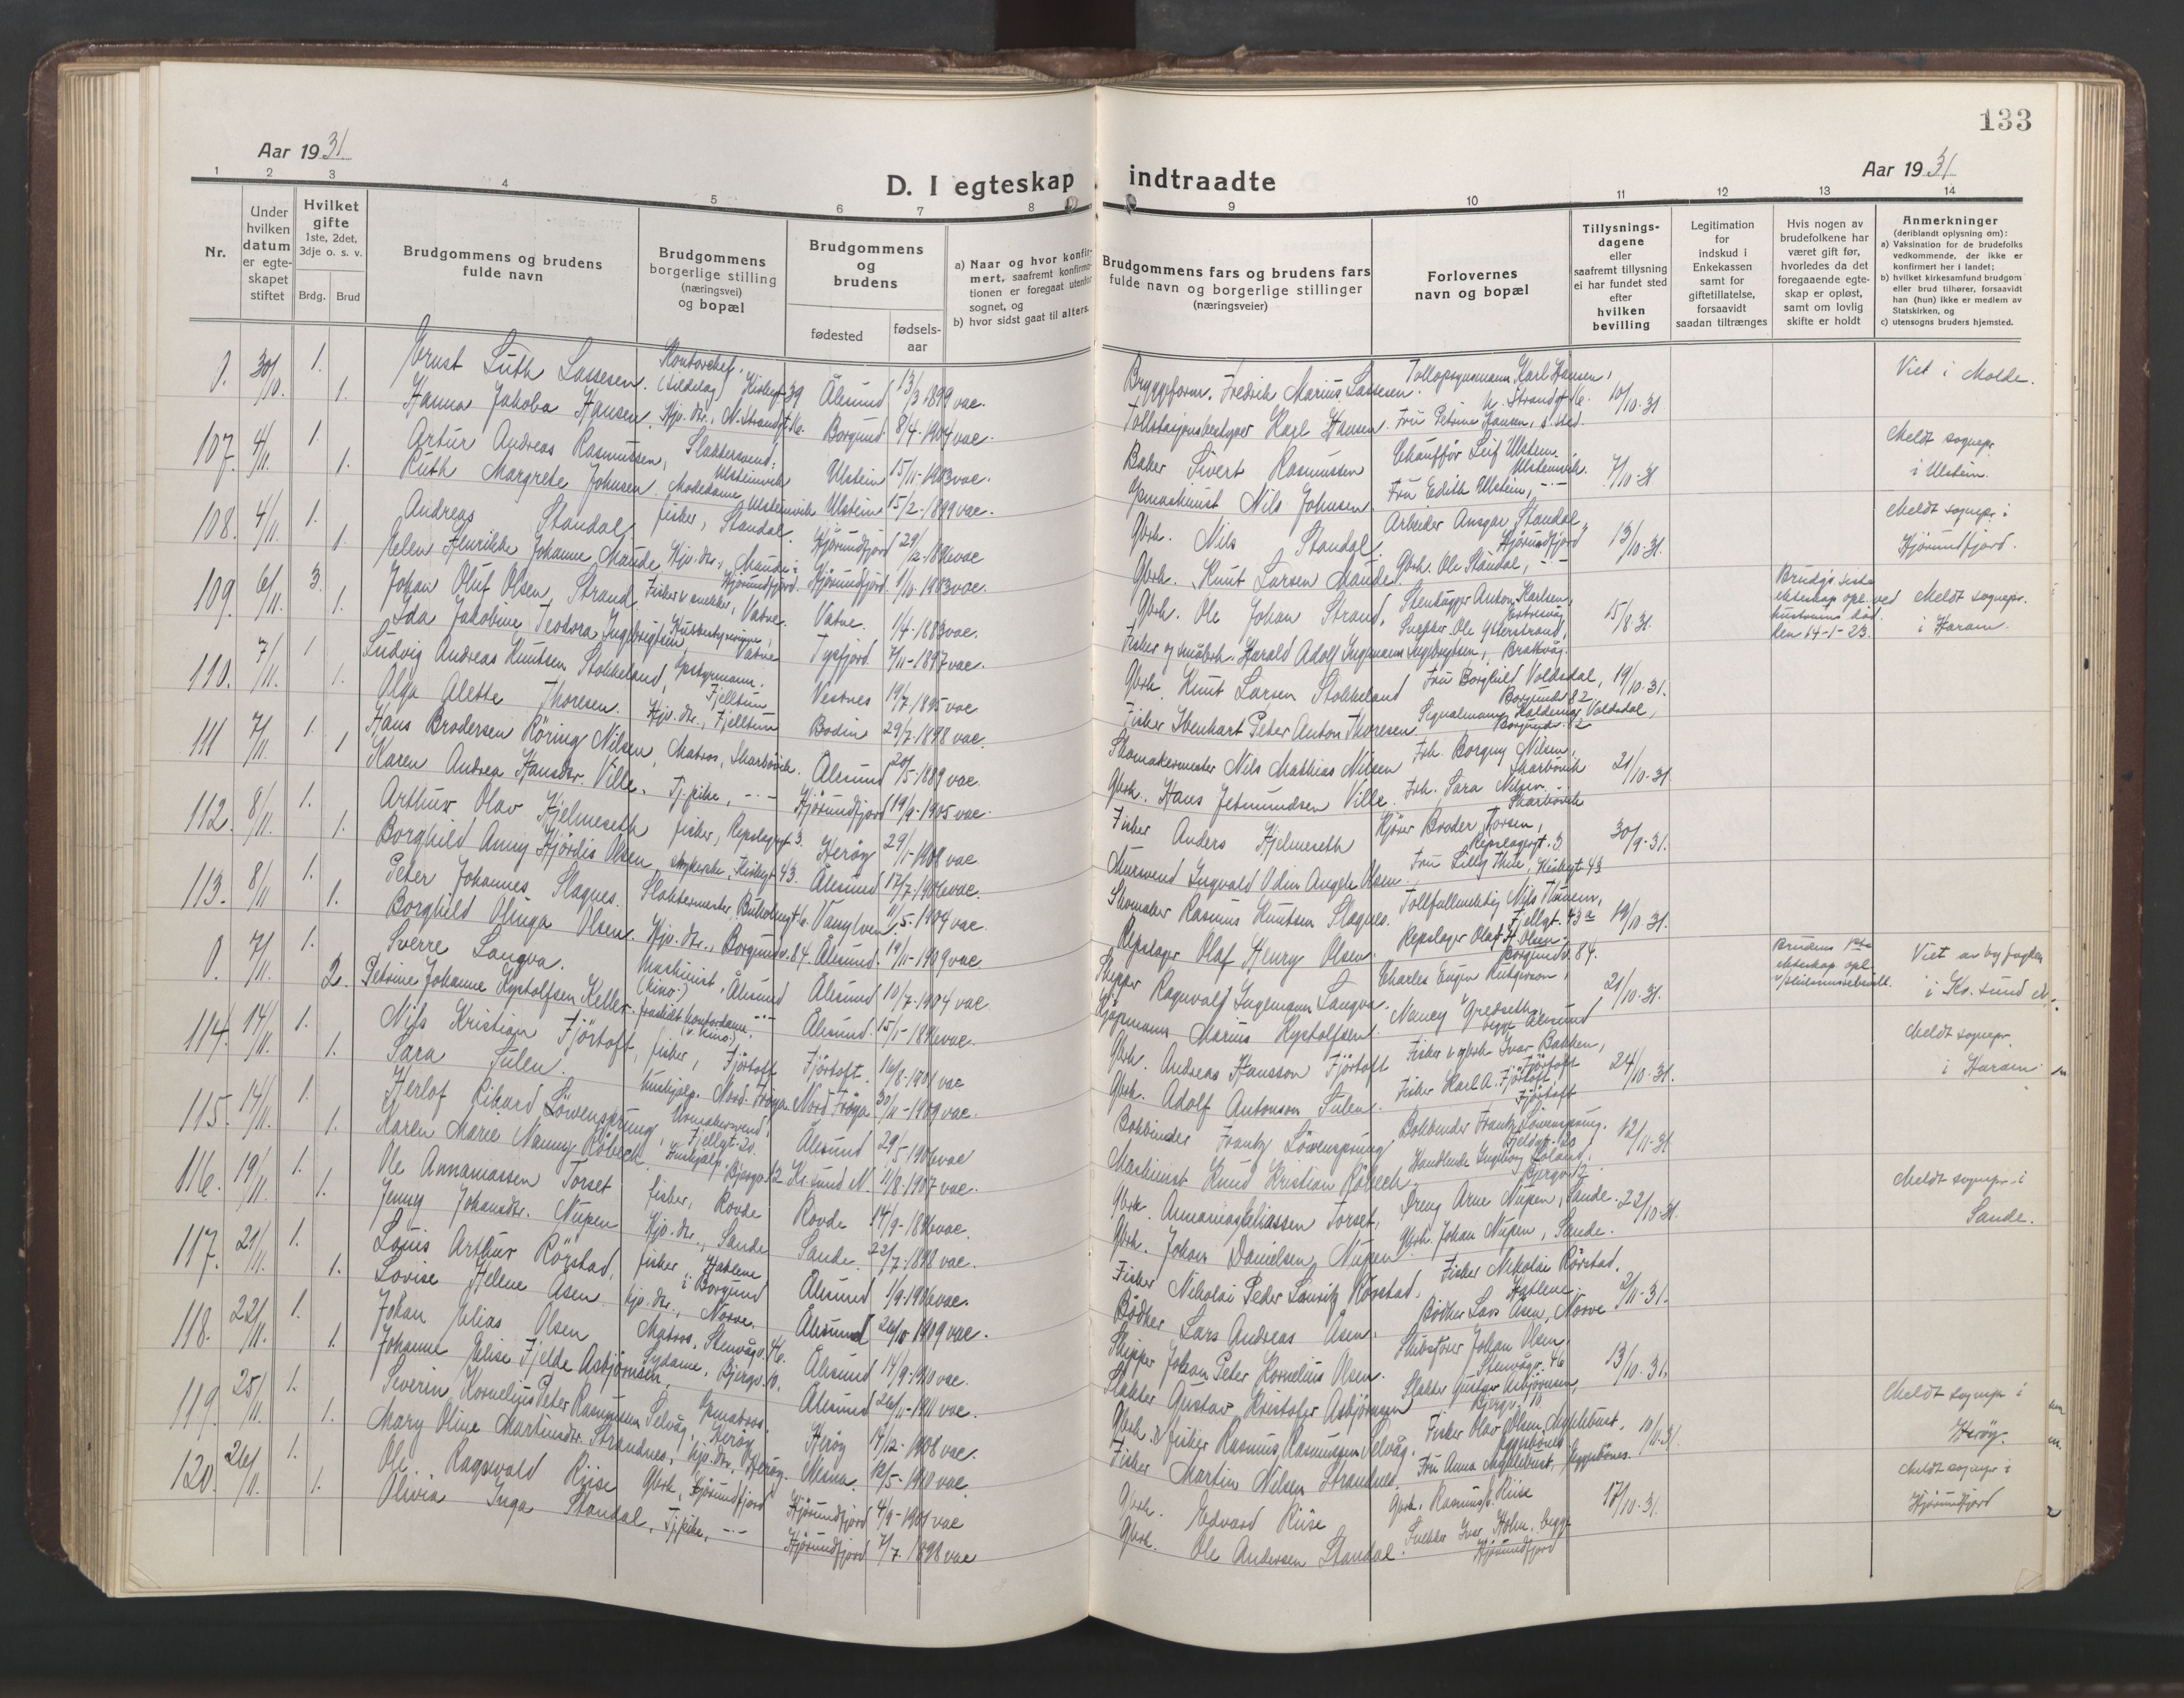 133
Aar 1931
Aar 1931
D. I egteskap indtraadte
1 2 3 4 5 6 7 8 9 10 11 12 13 14
Nr.
Under hvilken datum er egteskapet stiftet
Hvilket gifte 1ste, 2det, 3dje o. s. v.
Brdg. Brud
Brudgommens og brudens fulde navn
Brudgommens borgerlige stilling (næringsvei) og bopæl
Brudgommens og brudens
fødested
fødsels-aar
a) Naar og hvor konfirmert, saafremt konfirmationen er foregaat utenfor sognet, og
b) hvor sidst gaat til alters.
Brudgommens fars og brudens fars fulde navn og borgerlige stillinger (næringsveier)
Forlovernes navn og bopæl
Tillysnings-dagene eller saafremt tillysning ei har fundet sted efter hvilken bevilling
Legitimation for indskud i Enkekassen samt for giftetillatelse, forsaavidt saadan tiltrænges
Hvis nogen av brudefolkene har været gift før, hvorledes da det foregaaende egteskap er opløst, samt om lovlig skifte er holdt
Anmerkninger (deriblandt oplysning om):
a) Vaksination for de brudefolks vedkommende, der ikke er konfirmert her i landet;
b) hvilket kirkesamfund brudgom eller brud tilhører, forsaavidt han (hun) ikke er medlem av Statskirken, og
c) utensogns bruders hjemsted.
0. 30/10. 1. Ernst Luth Lassesen. Kontorchef. (Sildelag) Kirkegt. 39 Ålesund 13/3 1899 vac. Bryggeform. Fredrik Marius Lassesen. Tollopsynsmann Karl Hansen, N. Strandgt. 16. 10/10-31 Viet i Molde.
1. Hanna Jakoba Hansen. Hjv. dtr., N. Strandgt. 16. Borgund 8/4-1904 vac. Tollstasjonsbestyrer Karl Hansen. Fru Petrine Hansen, s. sted.
107. 4/11. 1. Artur Andreas Rasmussen, Slaktersvend, Ulsteinvik Ulstein 15/11-1903 vac. Baker Sivert Rasmussen Chauffør Leif Ulstein. Ulsteinvik. 7/10-31 Meldt sognepr. i Ulstein.
1. Ruth Margrete Johnsen. Modedame Ulsteinvik Ulstein 15/2-1899 vac. Nils Johnsen. Fru Edith Ulstein, -"-
108. 4/11. 1. Andreas Standal fisker, Standal. Hjørundfjord 29/12-1896 vac Gbrk. Nils Standal. Arbeider Ansgar Standal, Hjørundfjord 13/10-31. Meldt sognepr. i Hjørundfjord.
1. Helen Henrikke Johanne Maude Hjv. dtr., Maude i Hjørundfjord. Hjørundfjord 1/10-1903 vac. Gbrk. Knut Larsen Maude. Gbrk. Ole Standal, -"-
109. 6/11. 3. Johan Oluf Olsen Strand. Fisker & snekker, Vatne. Vatne. 1/4-1883 vac. Gbrk. Ole Johan Strand. Stenhugger Anton Karlsen, Snekker Ole Ytterstrand, 15/8-31. Brudg's siste ekteskap opl. ved hustruens død den 14-1-23. Meldt sognepr. i Haram.
1. Ida Jakobine Teodora Ingebrigtsen, Husbestyrerinne, Vatne Tysfjord 7/11-1897 vac. Fisker og småbrk. Harald Adolf Ingemann Ingebrigtsen, Brattvåg.
110. 7/11. 1 Ludvig Andreas Knutsen Stokkeland, Fjelltun Vestnes 19/7 1895 vac Gbrk. Knut Larsen Stokkeland Fru Borghild Voldsdal, Borgundv. 82 19/10-31.
1. Olga Alette Thoresen. Hjv. dtr., Fjelltun Bodin 29/7-1898 vac. Fisker Peter Anton Thoresen. Signalmann Voldsdal, Borgundv. 82
111 7/11. 1. Hans Brodersen Röring Nilsen, Matros, Skarbøvik. Ålesund 20/5-1889 vac. Skomakermester Nils Mathias Nilsen Frk. Borgny Nilsen, Skarbøvik 21/10-31.
1 Karen Andrea Hansdtr. Ville. Tj. pike, -"- Hjørundfjord 19/9-1905 vac. Gbrk. Hans Jetmundsen Ville. Frk. Sara Nilsen. Skarbøvik
112. 8/11. 1. Arthur Olav Hjelmeseth fisker, Repslagergt. 3. Herøy 29/1-1908 vac Fisker Anders Hjelmeseth Kjører Broder Torsen, Repslagergt. 3 30/9-31.
1. Borghild Anny Hjördis Olsen, Kirkegt. 43. Ålesund 17/7-1906 vac. Murvend Ingvald Odin Angell Olsen. Fru Lilly Thue, Kirkegt. 43
113. 8/11 1. Peter Johannes Slagnes. Slaktermester, Buholmgt. 16. Vanylven. 11/5-1904 vac. Skomaker Rasmus Knutsen Slagnes. Tollfullmektig Nils Thunem, Fjellgt. 43 a 19/10-31.
1. Borghild Olinga Olsen. Hjv. dtr., Borgundv. 84. Ålesund. 19/11-1909 vac. Repslager Olaf Henry Olsen. Repslager Olaf H. Olsen, Borgundv. 84.
0. 7/11. 1. Sverre Langva. Maskinist, (Kino.) Ålesund Ålesund 10/7-1904 vac. Skipper Ragnvald Ingemann Langva. Charles Eugen Rutgerson, 21/10-31. Brudens 1ste ekteskap opl. v/skilsmissebevill. Viet av byfogden i Kr. sund N.
2. Petrine Johanne Rystolfsen Keller. fraskilt kontordame. (Kino) -"- Ålesund 15/1-1896 vac. Kjøpmann Marius Rystolfsen Nancy Gredseth, begge Ålesund
114. 14/11. 1. Nils Kristian Fjörtoft, fisker, Fjörtoft Fjörtoft. 16/8-1901 vac Gbrk. Andreas Hansson Fjörtoft Fisker & gbrk. Ivar Bakken, Fjörtoft 24/10-31. Meldt sognepr. i Haram
1. Sara Sulen. Hushjelp. Nord-Frøya. Nord Frøya 30/11-1909 vac. Gbrk. Adolf Antonson Sulen. Fisker Karl A. Fjörtoft, Fjörtoft
115. 14/11. 1. Herlof Rikard Löwensprung, Urmakersvend, Fjellgt. 20. Ålesund 29/5-1906 vac Bokbinder Frantz Löwensprung Bokbinder Frantz Löwensprung. Fjeldgt. 20 12/11-31.
1. Karen Marie Nanny Röbech. Hushjelp. Bjergv. 12 Kr. sund N. 11/8-1907 vac. Maskinist Knud Kristian Röbech. Handlende Ingeborg Roland, Bjergv. 12
116. 19/11. 1. Ole Annaniassen Torset fisker, Rovde Rovde 14/9-1896 vac. Gbrk. Annanias Eliassen Torset, Dreng Arne Nupen, Sande. 22/10-31. Meldt sognepr. i Sande.
1. Jenny Johansdtr. Nupen Hjv. dtr., Sande Sande. 22/7-1898 vac. Gbrk. Johan Danielsen Nupen Gbrk. Johan Nupen, Sande.
117. 21/11. 1. Louis Arthur Rörstad, fisker Hatlene i Borgund Ålesund 1/9-1906 vac. Fisker Nikolai Peder Lauritz Rörstad. Fisker Nikolai Rörstad, Hatlene. 2/11-31.
1. Lovise Helene Åsen. Hjv. dtr., Nørve. Ålesund 26/10-1909 vac. Bödker Lars Andreas Åsen. Bödker Lars Åsen, Nørve
118. 22/11. 1. Johan Elias Olsen Matros, Stenvågv. 46. Ålesund 14/9-1910 vac. Skipper Johan Peter Kornelius Olsen. Skibsfører Johan Olsen, Stenvågv. 46 13/10-31.
1. Johanne Elise Fjelde Asbjörnsen. Sydame. Bjergv. 10. Ålesund 26/11-1911 vac. Slakter Gustav Kristofer Asbjörnsen Slakter Gustav Asbjörnsen, Bjergv. 10
119. 25/11. 1. Severin Kornelius Peter Rasmussen Selvåg, Herøy Herøy 14/12-1908 vac. Gbrk. & fisker Rasmus Rasmussen Selvåg. Fisker Olav Olsen Myklebust, Eggesbønes 10/11-31. Meldt sognepr. i Herøy.
1. Mary Oline Martinsdtr. Strandnes, Hjv. dtr., Herøy. 12/5-1910 vac. Fisker Martin Nilsen Strandnes. Fru Anna Myklebust, Eggesbønes.
120. 26/11. 1. Ole Ragnvald Riise Gbrk., Hjørundfjord Hjørundfjord 4/9-1901 vac Gbrk. Edvard Riise Gbrk. Rasmus E. Riise 17/10-31. Meldt sognepr. i Hjørundfjord
1. Olivia Inga Standal, Tj. pike, -"- Hjørundfjord 7/7. 1898 vac Gbrk. Ole Andersen Standal. Snekker Ivar Holm, begge Hjørundfjord